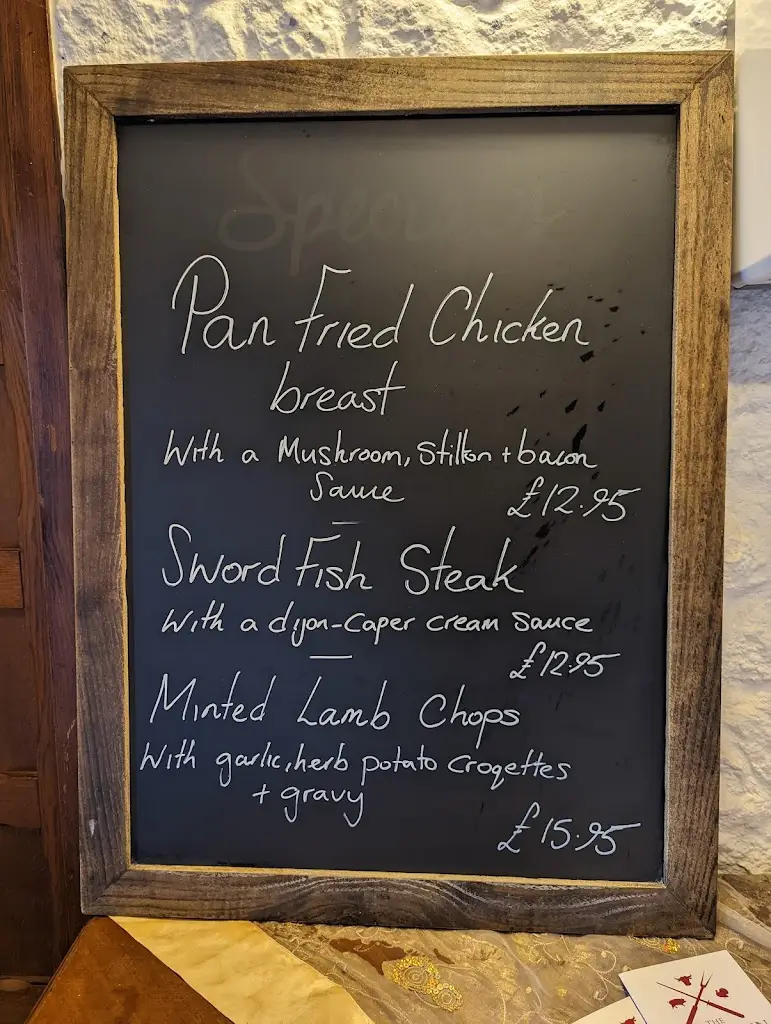 Specials
Pan Fried Chicken
breast
With a Mushroom, Stilton + bacon
Sauce
£12.95
Sword Fish Steak
With a dijon-caper cream sauce
£12.95
Minted Lamb Chops
With garlic, herb potato croqettes
+ gravy
£15.95
THE